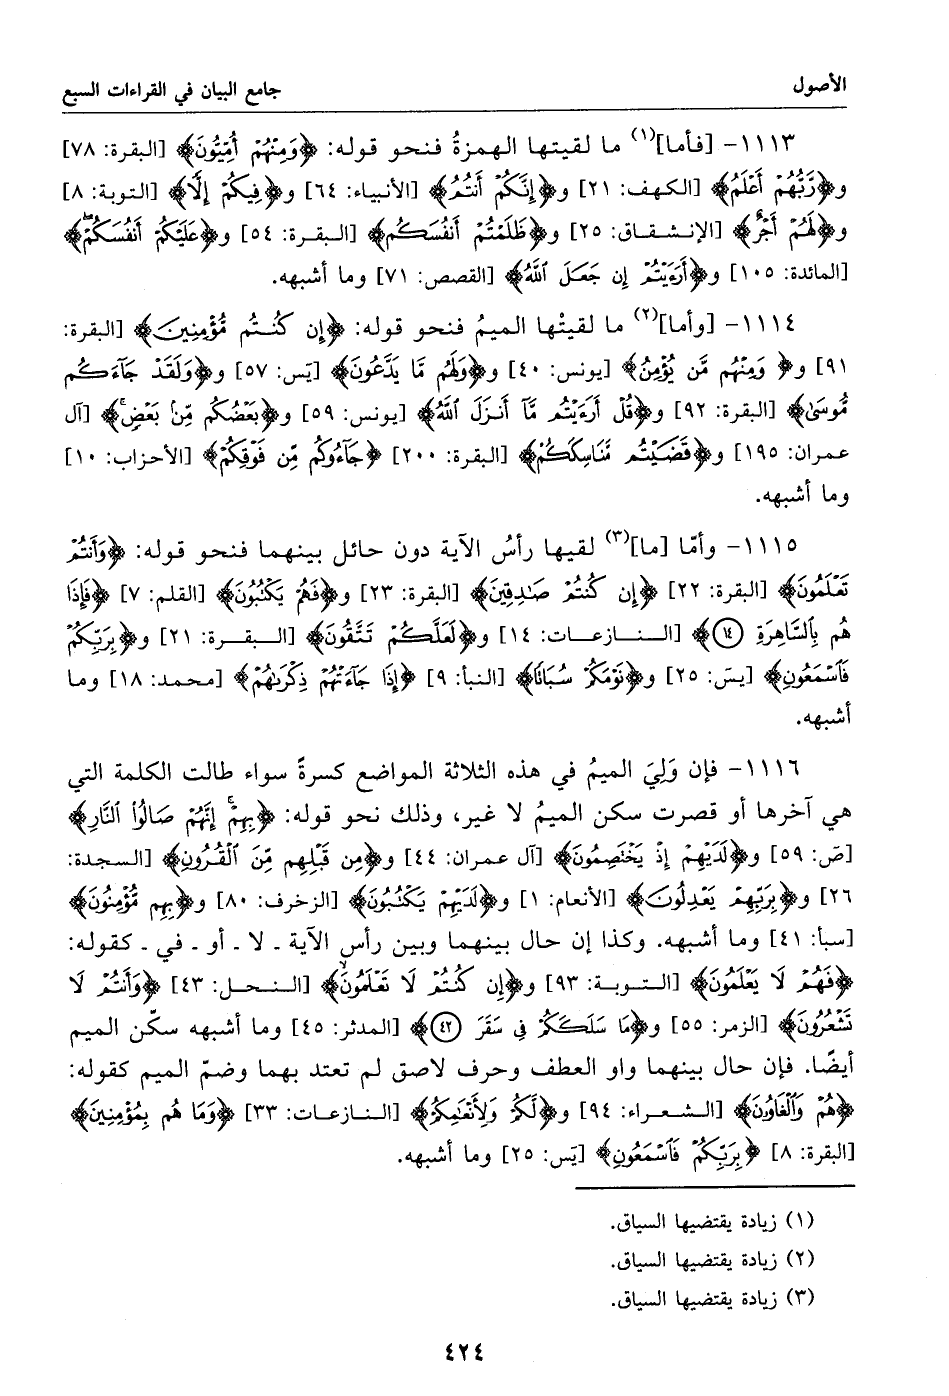 الأصول
جامع البيان في القراءات السبع
١١١٣- [فأما](١) ما لقيتها الهمزةُ فنحو قوله: ﴿وَمِنْهُمْ أُمِّيُّونَ﴾ [البقرة: ٧٨]
و﴿رَّبُّهُمْ أَعْلَمُ﴾ [الكهف: ٢١] و﴿إِنَّكُمْ أَنتُمُ﴾ [الأنبياء: ٦٤] و﴿فِيكُمْ إِلًّا﴾ [التوبة: ٨]
و﴿لَهُمْ أَجْرٌ﴾ [الإنشقاق: ٢٥] و﴿ظَلَمْتُمْ أَنفُسَكُم﴾ [البقرة: ٥٤] و﴿عَلَيْكُمْ أَنفُسَكُمْ﴾
[المائدة: ١٠٥] و﴿أَرَءَيْتُمْ إِن جَعَلَ ٱللَّهُ﴾ [القصص: ٧١] وما أشبهه.
١١١٤- [وأما](٢) ما لقيتْها الميمُ فنحو قوله: ﴿إِن كُنتُم مُّؤْمِنِينَ﴾ [البقرة:
٩١] و﴿وَمِنْهُم مَّن يُؤْمِنُ﴾ [يونس: ٤٠] و﴿وَلَهُم مَّا يَدَّعُونَ﴾ [يَس: ٥٧] و﴿وَلَقَدْ جَآءَكُم
مُّوسَىٰ﴾ [البقرة: ٩٢] و﴿قُلْ أَرَءَيْتُم مَّآ أَنزَلَ ٱللَّهُ﴾ [يونس: ٥٩] و﴿بَعْضُكُم مِّنۢ بَعْضٍ﴾ [آل
عمران: ١٩٥] و﴿قَضَيْتُم مَّنَاسِكَكُمْ﴾ [البقرة: ٢٠٠] ﴿جَآءُوكُم مِّن فَوْقِكُمْ﴾ [الأحزاب: ١٠]
وما أشبهه.
١١١٥- وأمّا [ما](٣) لقيها رأسُ الآية دون حائل بينهما فنحو قوله: ﴿وَأَنتُمْ
تَعْلَمُونَ﴾ [البقرة: ٢٢] ﴿إِن كُنتُمْ صَٰدِقِينَ﴾ [البقرة: ٢٣] و﴿فَهُمْ يَكْتُبُونَ﴾ [القلم: ٧] ﴿فَإِذَا
هُم بِٱلسَّاهِرَةِ ١٤﴾ [النازعات: ١٤] و﴿لَعَلَّكُمْ تَتَّقُونَ﴾ [البقرة: ٢١] و﴿بِرَبِّكُمْ
فَٱسْمَعُونِ﴾ [يسَ: ٢٥] و﴿نَوْمَكُمْ سُبَاتًا﴾ [النبأ: ٩] ﴿إِذَا جَآءَتْهُمْ ذِكْرَىٰهُمْ﴾ [محمد: ١٨] وما
أشبهه.
١١١٦- فإن وَلِيَ الميمُ في هذه الثلاثة المواضع كسرةً سواء طالت الكلمة التي
هي آخرها أو قصرت سكن الميمُ لا غير، وذلك نحو قوله: ﴿بِهِمْ ۚ إِنَّهُمْ صَالُوا۟ ٱلنَّارِ﴾
[صَ: ٥٩] و﴿لَدَيْهِمْ إِذْ يَخْتَصِمُونَ﴾ [آل عمران: ٤٤] و﴿مِن قَبْلِهِم مِّنَ ٱلْقُرُونِ﴾ [السجدة:
٢٦] و﴿بِرَبِّهِمْ يَعْدِلُونَ﴾ [الأنعام: ١] و﴿لَدَيْهِمْ يَكْتُبُونَ﴾ [الزخرف: ٨٠] و﴿بِهِم مُّؤْمِنُونَ﴾
[سبأ: ٤١] وما أشبهه. وكذا إن حال بينهما وبين رأس الآية - لا - أو - في - كقوله:
﴿فَهُمْ لَا يَعْلَمُونَ﴾ [التوبة: ٩٣] و﴿إِن كُنتُمْ لَا تَعْلَمُونَ﴾ [النحل: ٤٣] ﴿وَأَنتُمْ لَا
تَشْعُرُونَ﴾ [الزمر: ٥٥] و﴿مَا سَلَكَكُمْ فِى سَقَرَ ٤٢﴾ [المدثر: ٤٥] وما أشبهه سكّن الميم
أيضًا. فإن حال بينهما واو العطف وحرف لاصق لم تعتد بهما وضمّ الميم كقوله:
﴿هُمْ وَٱلْغَاوُۥنَ﴾ [الشعراء: ٩٤] و﴿لَّكُمْ وَلِأَنْعَٰمِكُمْ﴾ [النازعات: ٣٣] ﴿وَمَا هُم بِمُؤْمِنِينَ﴾
[البقرة: ٨] ﴿بِرَبِّكُمْ فَٱسْمَعُونِ﴾ [يَس: ٢٥] وما أشبهه.
(١) زيادة يقتضيها السياق.
(٢) زيادة يقتضيها السياق.
(٣) زيادة يقتضيها السياق.
٤٢٤